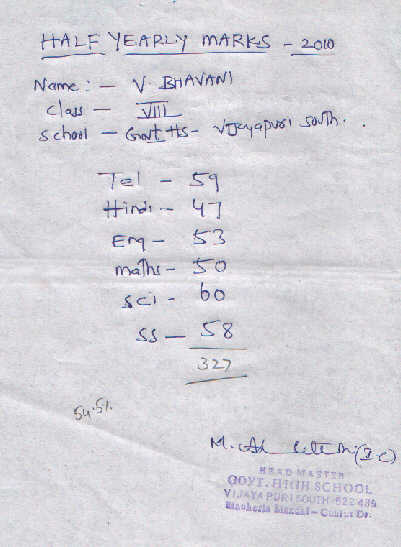 HALF YEARLY MARKS - 2010
Name: - V. BHAVANI
Class - VIII
School - Govt HS - Vijayapuri South.
Tel - 59
Hindi - 47
Eng - 53
maths - 50
sci - 60
SS - 58
327
54.5%
M. (I/C)
HEAD MASTER
GOVT. HIGH SCHOOL
VIJAYA PURI SOUTH-522 439
Macherla Mandal - Guntur Dt.